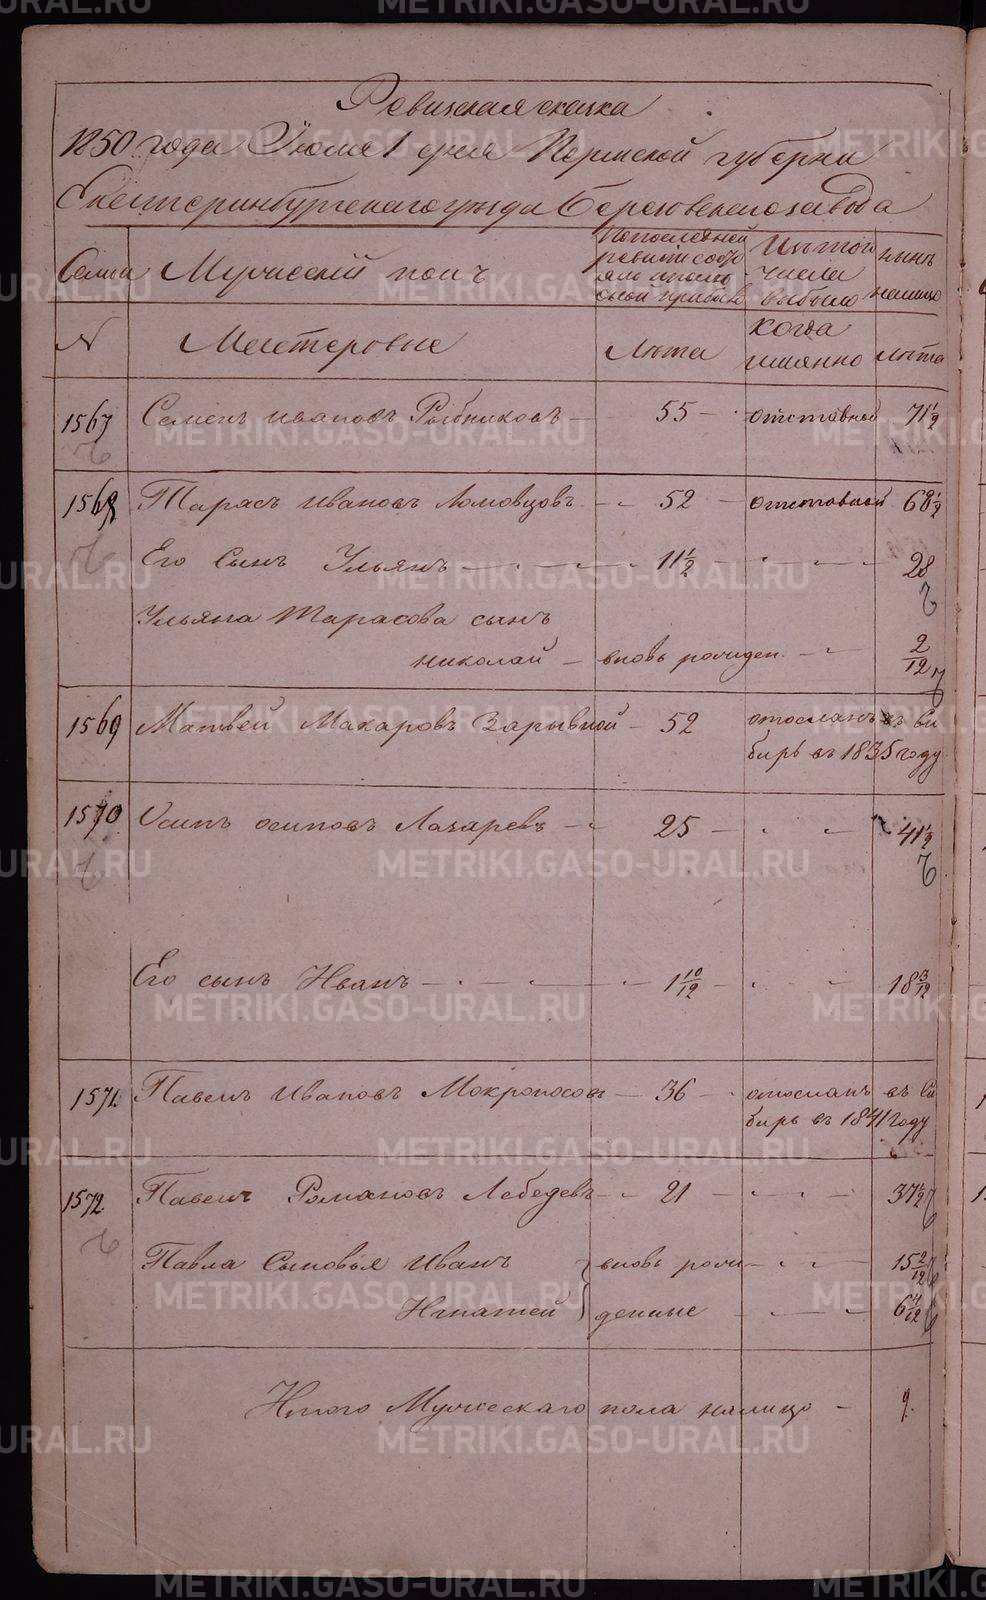 Ревизская сказка
1850 года Июля 1 дня Пермской губернии
Екатеринбургскаго уезда Березовскаго завода
Семьи
Мужеский полъ
По последней ревизии состояло и после оной прибыло
Изъ того числа выбыло
Ныне на лицо
№
Мастеровые
Лѣта
когда имянно
лѣта
1567 Семенъ Ивановъ Рыбниковъ — 55 — отставной 71 1/2
1568 Тарасъ Ивановъ Ломовцовъ — 52 — отставной 68 1/2
Его Сынъ Ульянъ — 11 1/2 — 28
Ульяна Тарасова сынъ
Николай — вновь рожден — 2/12
1569 Матвей Макаровъ Зарывной — 52 отосланъ въ Си
бирь въ 1835 году
1570 Осипъ Осиповъ Лазаревъ — 25 — 41 1/2
Его сынъ Иванъ — 1 10/12 — 18 3/12
1571 Павелъ Ивановъ Мокроносовъ — 36 — отосланъ въ Си
бирь въ 1841 году
1572 Павелъ Романовъ Лебедевъ — 21 — 37 1/2
Павла Сыновья Иванъ вновь рожи — 15 2/12
Игнатей денные — 6 4/12
Итого Мужескаго пола налицо — 9.
METRIKI.GASO-URAL.RU